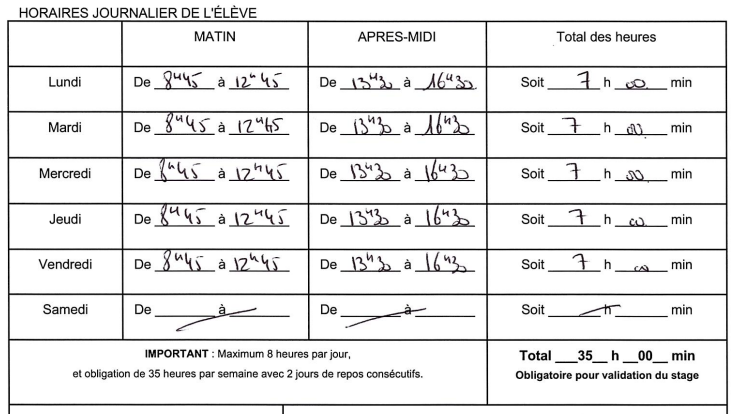 HORAIRES JOURNALIER DE L'ÉLÈVE
MATIN APRES-MIDI Total des heures
Lundi De 8h45 à 12h45 De 13h30 à 16h30 Soit 7 h 00 min
Mardi De 8h45 à 12h45 De 13h30 à 16h30 Soit 7 h 00 min
Mercredi De 8h45 à 12h45 De 13h30 à 16h30 Soit 7 h 00 min
Jeudi De 8h45 à 12h45 De 13h30 à 16h30 Soit 7 h 00 min
Vendredi De 8h45 à 12h45 De 13h30 à 16h30 Soit 7 h 00 min
Samedi De à De à Soit h min
IMPORTANT : Maximum 8 heures par jour,
et obligation de 35 heures par semaine avec 2 jours de repos consécutifs.
Total 35 h 00 min
Obligatoire pour validation du stage